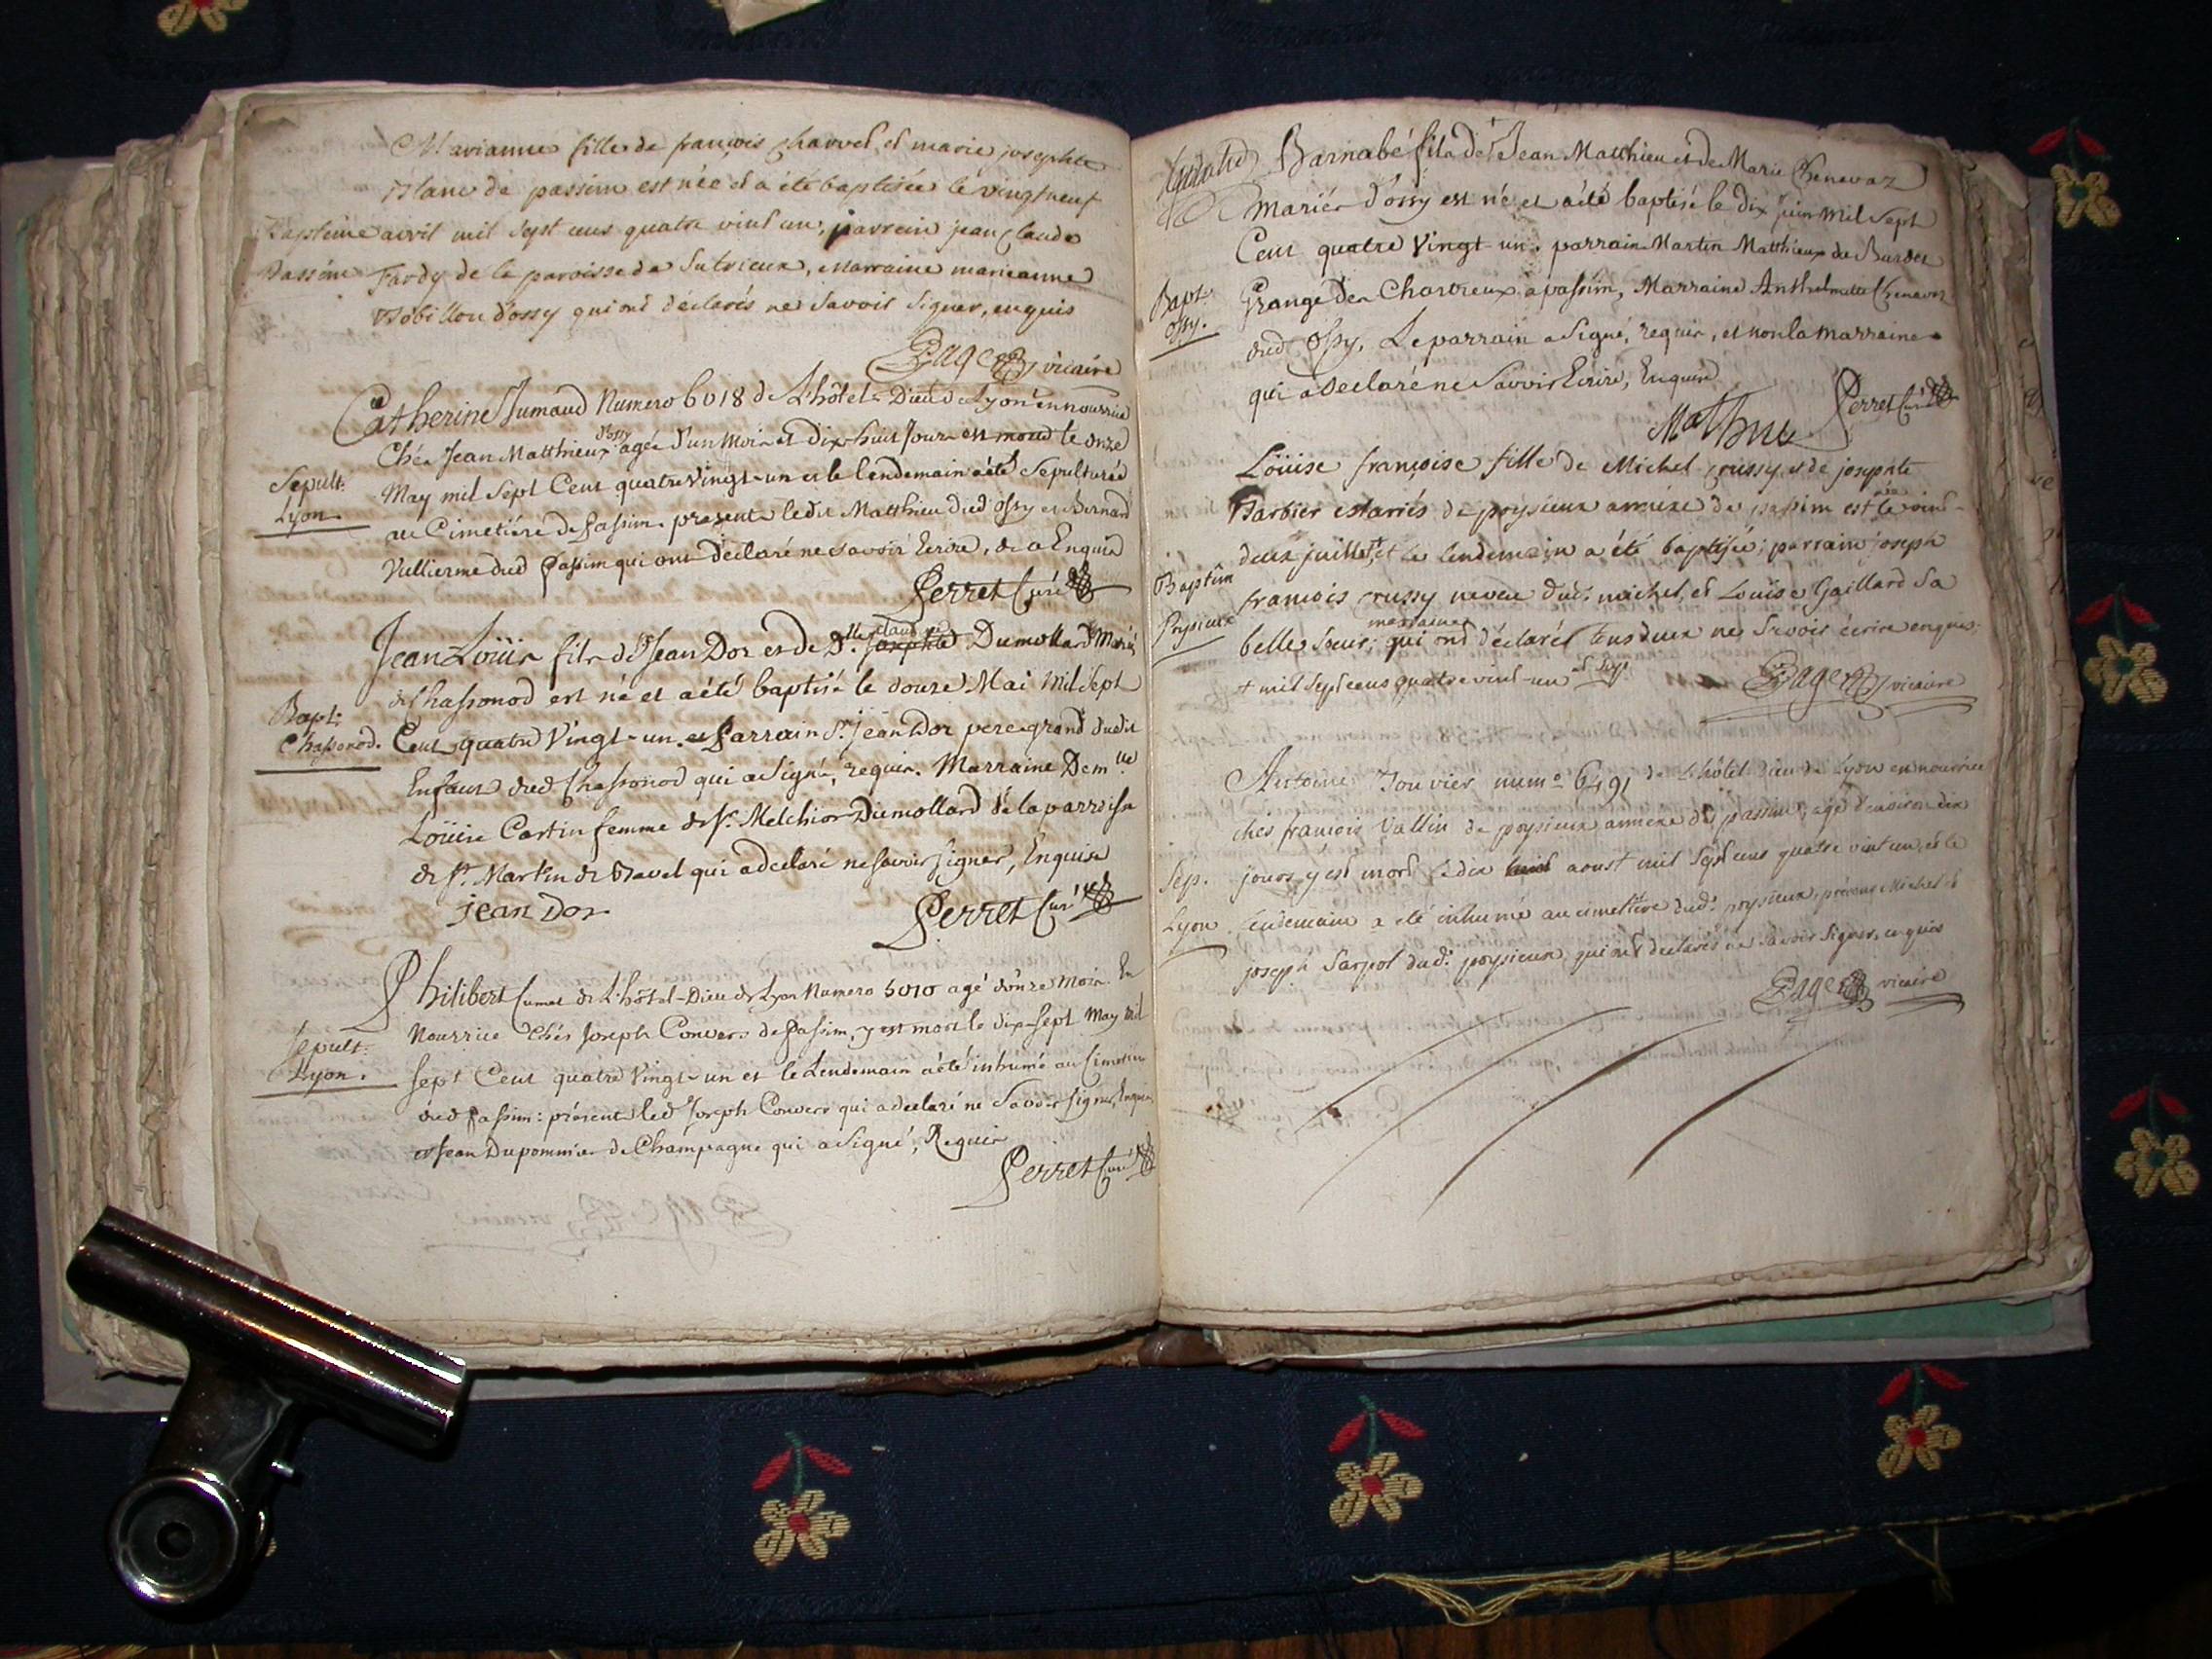 Marianne fille de françois Charvet et marie josephte
Blanc de passim est née et a été baptisée le vingt neuf
Baptême avril mil sept cens quatre vint un, parrein jean Claude
Passim Tardy de la paroisse de Sutrieux, marraine marieanne
Robillou d'ossy qui ont déclarés ne savoir signer, enquis
Page vicaire
Catherine Jumaud Numero 6018 de L'hôtel-Dieu de Lyon en nourrice
d'ossy
Chés Jean Matthieux agée d'un Mois et dix-huit Jours est le onze
Sépult. May mil Sept Cent quatre Vingt-un et le lendemain a été Sepulturéd
Lyon. au Cimetiére de passim presents ledit Matthieu dud ossy et Bernard
Vullierme dud passim qui ont déclaré ne savoir Ecrire, de a Enquis
Perret Curé
lle claudine
Jean Loüis fils de Sr Jean Dor et de D. Josephte Dumollard Mariés
de Chassonod est né et a été baptisé le douze Mai Mil Sept
Bapt. Chassonod. Cent quatre Vingt-un. et parrain Sr. jean Dor pere-grand dudit
Enfant dud Chassonod qui a signé, requis. Marraine Demlle
Loüise Cartin femme de Sr. Melchior Dumollard de la parroisse
de St. Martin de Bavel qui a declaré ne savoir signer, Enquise
jean Dor Perret Curé
Philibert Cumet de L'hôtel-Dieu de Lyon Numero 5010 agé d'onze mois En
Sépult. Nourrice chés Joseph Convers de passim, y est mort le dix-sept May mil
Lyon. Sept Cent quatre Vingt-un et le Lendemain a été inhumé au Cimetière
dud passim: présents led Joseph Convers qui a declaré ne Savoir signer, Enquis
et Jean Dupommier de Champagne qui a Signé, Requis
Perret Curé
Barnabé fils de Sr Jean Matthieu et de Marie Chenevaz
Mariés d'ossy est né et a été baptisé le dix juin mil Sept
Cent quatre Vingt-un. parrain Martin Matthieux de
Bapt. Ossy. Grange des Chartreux a passim, Marraine Anthelmette Chenevaz
dud Ossy, Le parrain a Signé, requis, et non la marraine
qui a declaré ne Savoir Ecrire, Enquise
Mathieu Perret Curé
Loüise françoise fille de Michel Crussy et de josephte
née
Barbier mariés de poysieux annéxe de passim est le vint-
deux juillet + et le lendemain a été baptisée; parrain joseph
Baptêm françois Crussy neveu dud. michel, et Loüise Gaillard Sa
Poysieux marraine
belle Soeur; qui ont déclarés tous deux ne Savoir écrire enquis;
+ mil sept cens quatre vint-un
Page vicaire
Antoine Jouvier num° 6491 de L'hôtel-Dieu de Lyon en nourrice
chés françois Vallin de poysieux annexe de passim, agé d'environ dix
Sép. jours y est mort le dix aoust mil Sept cens quatre vint un, et le
Lyon. lendemain a été inhumé au cimettiere dud. poysieux, présens Michel et
joseph Sarpol dud. poysieux, qui ont declarés ne Savoir Signer, enquis
Page vicaire